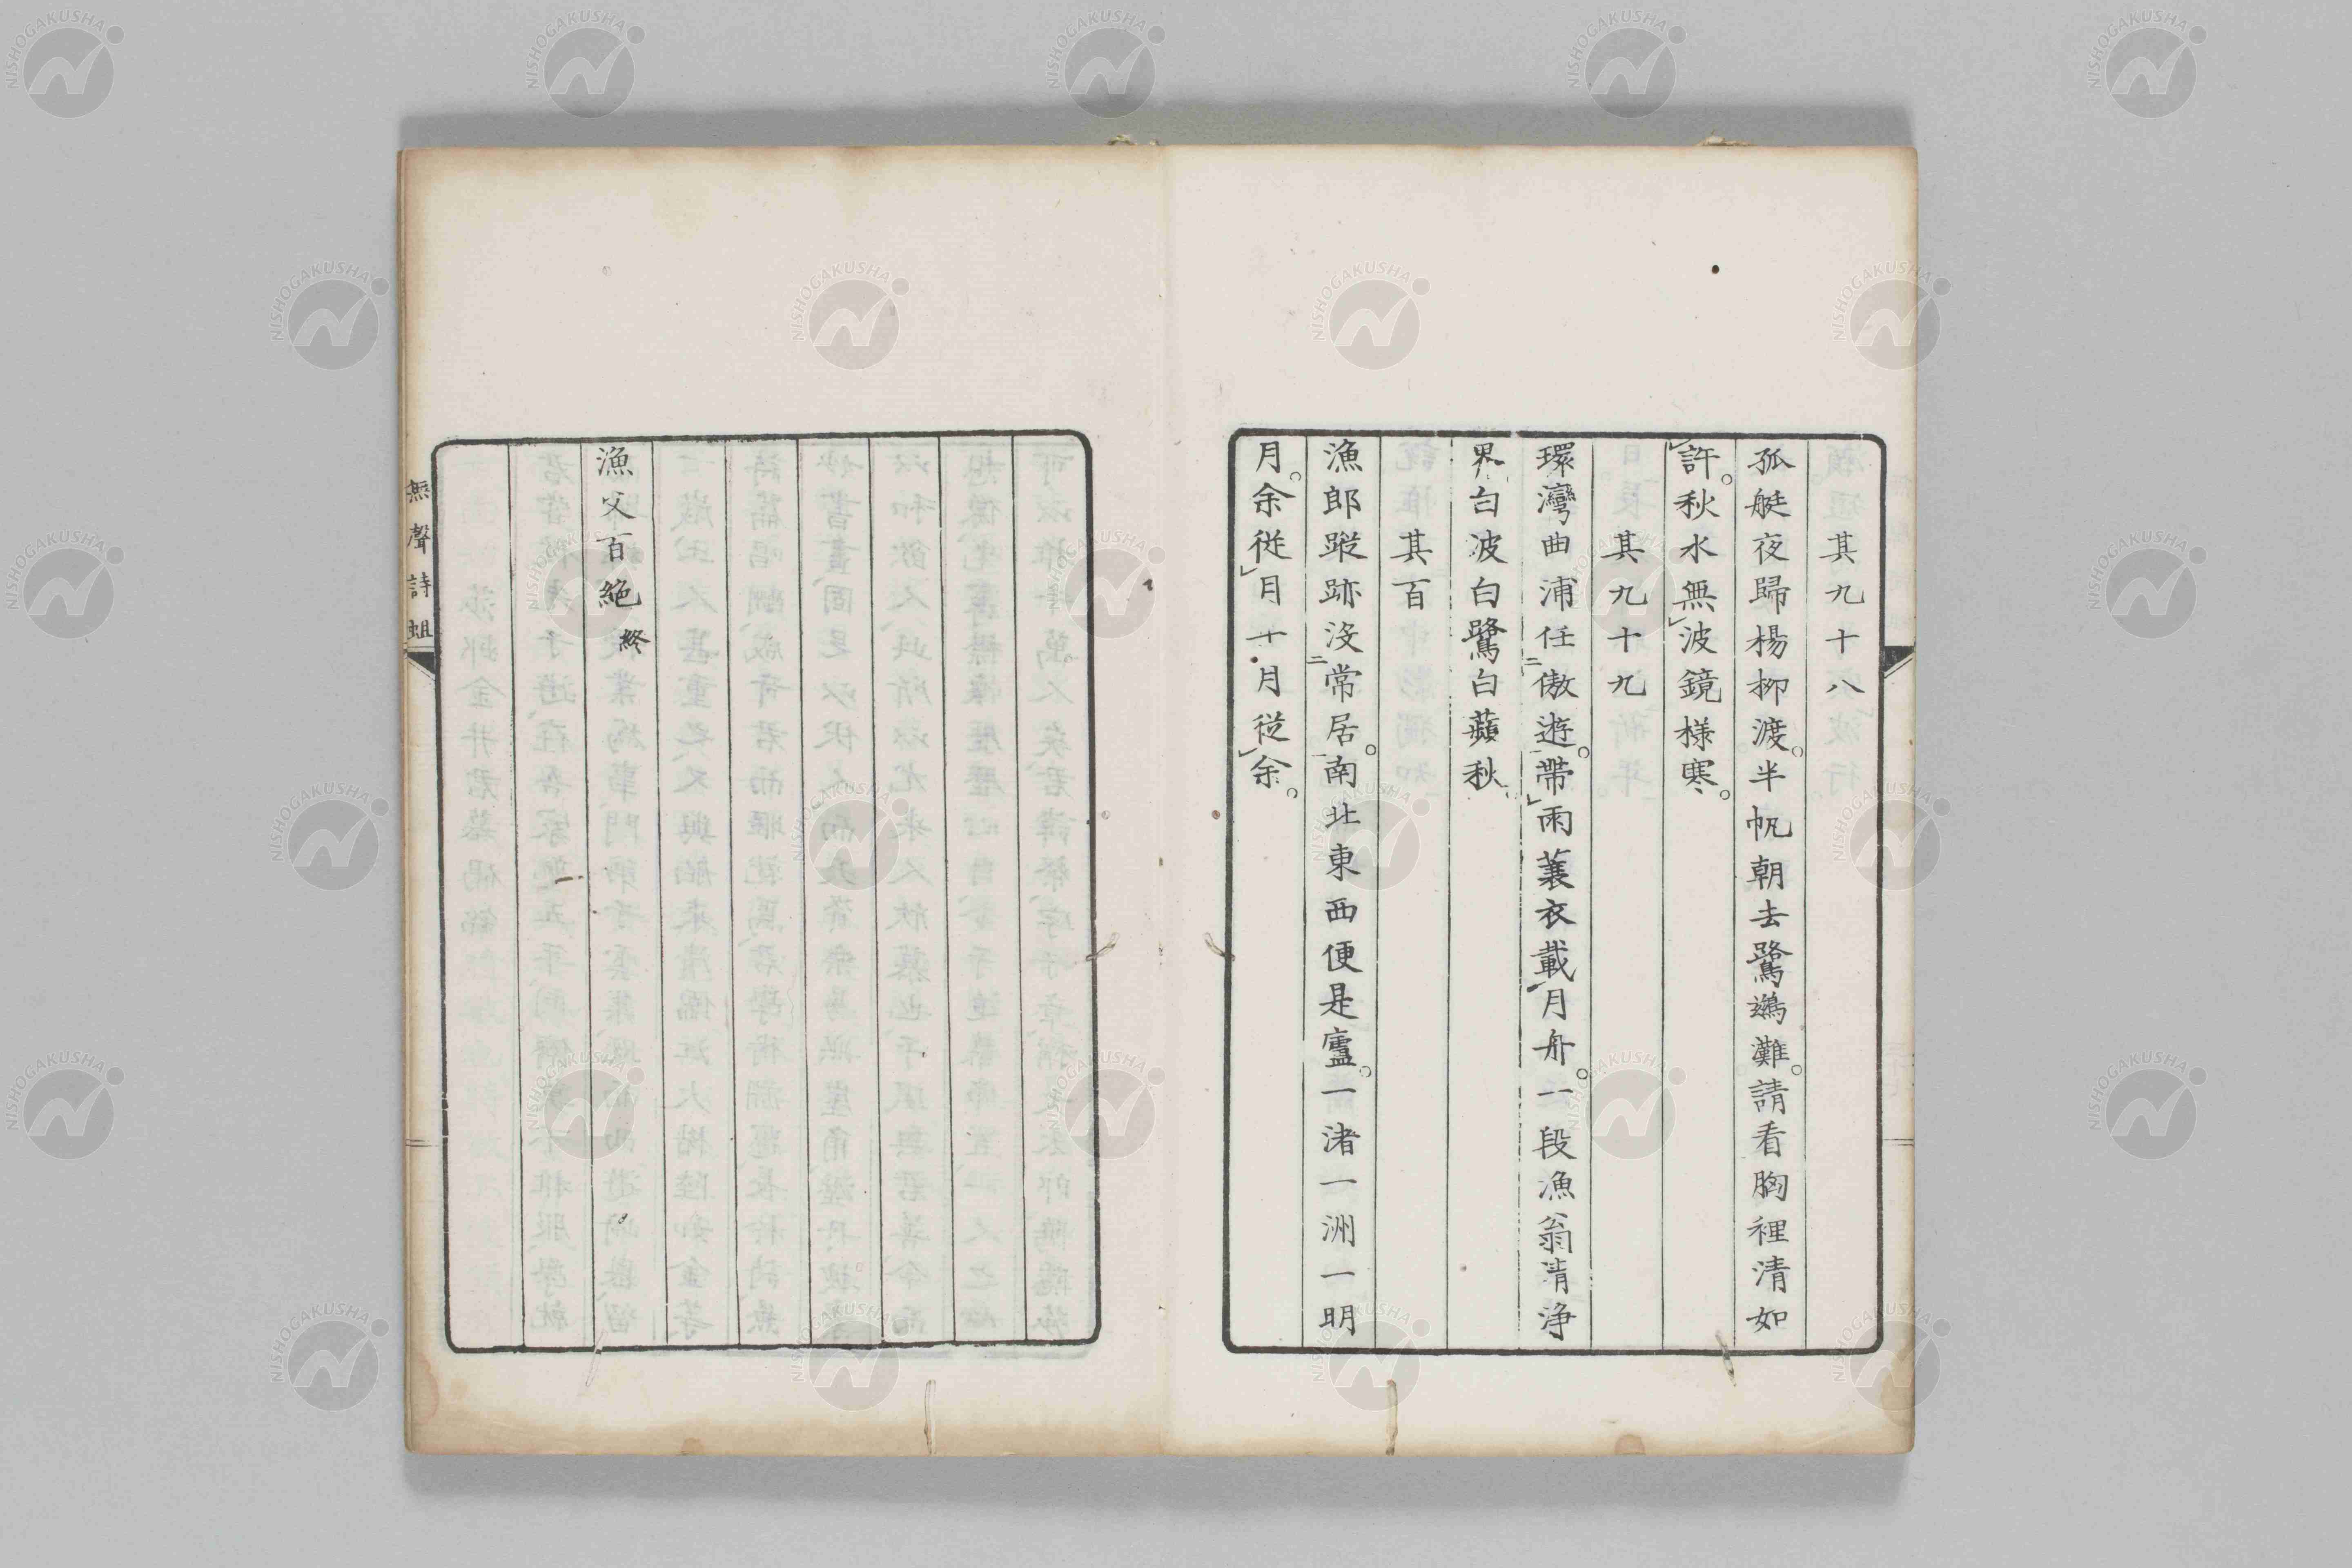 其九十八
孤艇夜歸楊柳渡。半帆朝去鷺鷀灘。請看胸裡清如
許。秋水無波鏡樣寒。
其九十九
環灣曲浦任傲遊。帶雨蓑衣載月舟。一段漁翁清淨
界。白波白鷺白蘋秋。
其百
漁郎蹤跡沒常居。南北東西便是廬。一渚一洲一明
月。余從月十月從余。
漁父百絕終
無聲詩蛆